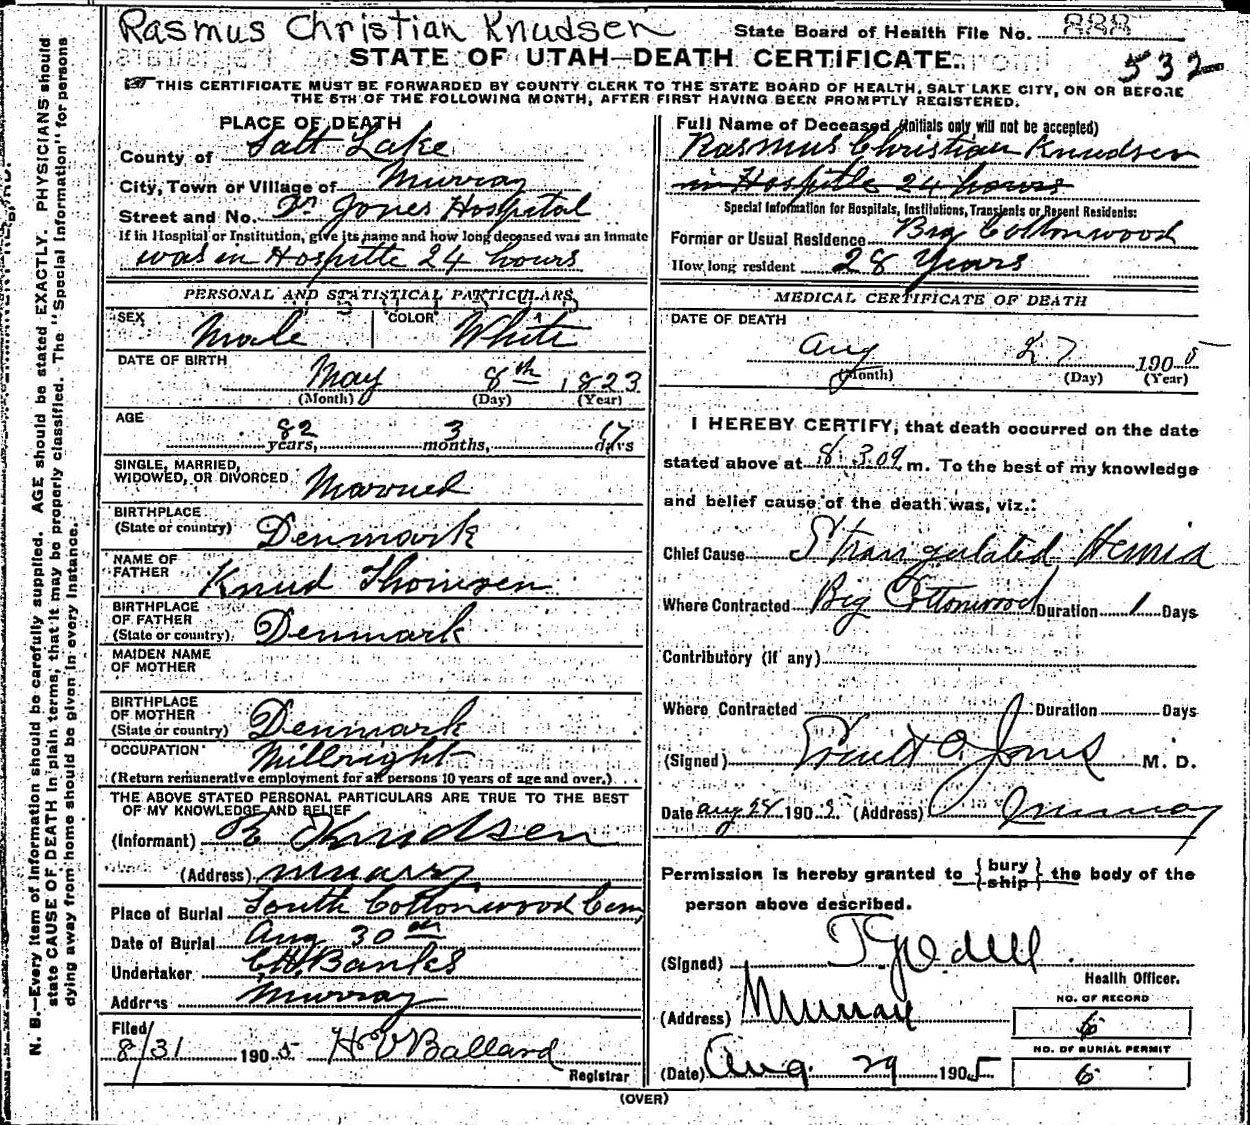 Rasmus Christian Knudsen
State Board of Health File No. 888
STATE OF UTAH—DEATH CERTIFICATE.
532
THIS CERTIFICATE MUST BE FORWARDED BY COUNTY CLERK TO THE STATE BOARD OF HEALTH, SALT LAKE CITY, ON OR BEFORE
THE 5TH OF THE FOLLOWING MONTH, AFTER FIRST HAVING BEEN PROMPTLY REGISTERED.
PLACE OF DEATH
County of Salt Lake
City, Town or Village of Murray
Street and No. Dr Jones Hospital
If in Hospital or Institution, give its name and how long deceased was an inmate
was in Hospitle 24 hours
PERSONAL AND STATISTICAL PARTICULARS
SEX Male COLOR White
DATE OF BIRTH
May 8th 1823
(Month) (Day) (Year)
AGE
82 years, 3 months, 17 days
SINGLE, MARRIED,
WIDOWED, OR DIVORCED Married
BIRTHPLACE
(State or country) Denmark
NAME OF
FATHER Knud Thomsen
BIRTHPLACE
OF FATHER
(State or country) Denmark
MAIDEN NAME
OF MOTHER
BIRTHPLACE
OF MOTHER
(State or country) Denmark
OCCUPATION Millright
(Return remunerative employment for all persons 10 years of age and over.)
THE ABOVE STATED PERSONAL PARTICULARS ARE TRUE TO THE BEST
OF MY KNOWLEDGE AND BELIEF
(Informant) Knudsen
(Address) Murray
Place of Burial South Cottonwood Cem,
Date of Burial Aug 30th
Undertaker Banks
Address Murray
Filed
8/31 1905 Ballard
Registrar
Full Name of Deceased (initials only will not be accepted)
Rasmus Christian Knudsen
in Hospitle 24 hours
Special Information for Hospitals, Institutions, Transients or Recent Residents:
Former or Usual Residence Big Cottonwood
How long resident 28 Years
MEDICAL CERTIFICATE OF DEATH
DATE OF DEATH
Aug 27 1905
(Month) (Day) (Year)
I HEREBY CERTIFY, that death occurred on the date
stated above at m. To the best of my knowledge
and belief cause of the death was, viz.:
Chief Cause Strangulated Hernia
Where Contracted Big Cottonwood Duration 1 Days
Contributory (if any)
Where Contracted Duration Days
(Signed) Jones M. D.
Date Aug 190 (Address) Murray
Permission is hereby granted to { bury ship } the body of the
person above described.
(Signed)
Health Officer.
(Address) Murray
NO. OF RECORD
6
NO. OF BURIAL PERMIT
6
(Date) Aug. 29 1905
(OVER)
N. B.—Every item of information should be carefully supplied. AGE should be stated EXACTLY. PHYSICIANS should
state CAUSE OF DEATH in plain terms, that it may be properly classified. The "Special Information" for persons
dying away from home should be given in every instance.